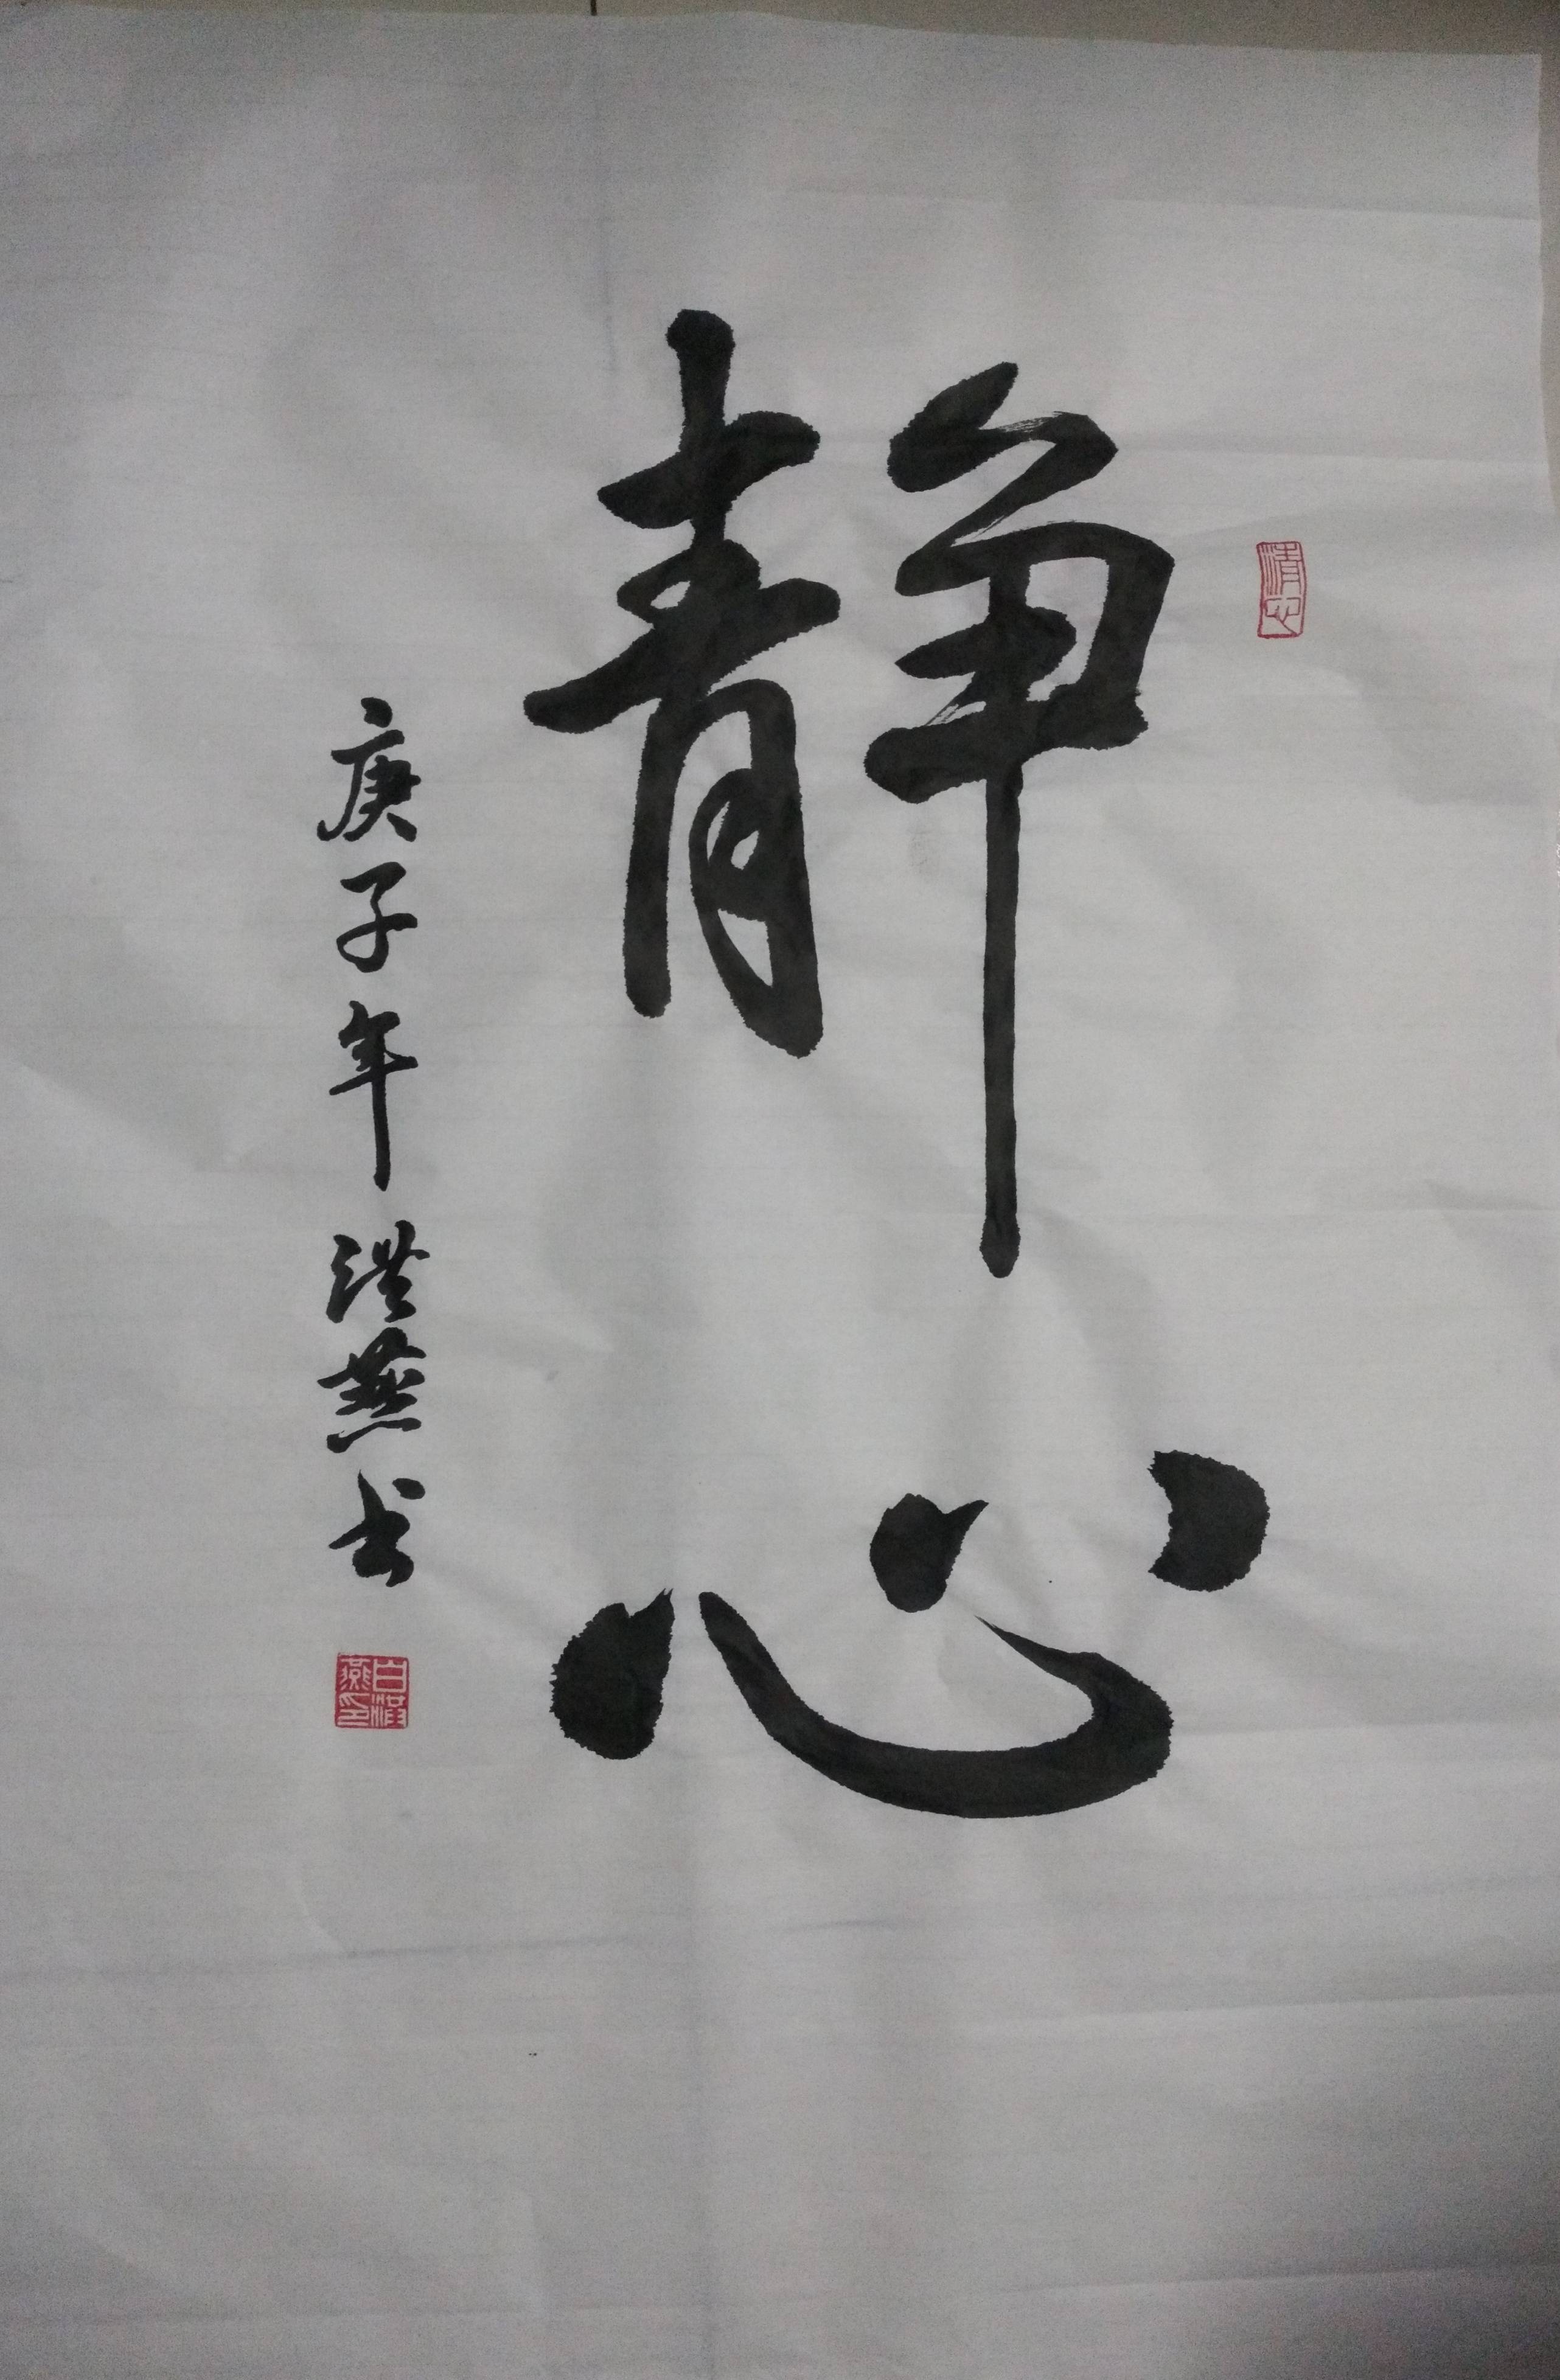 静心
庚子年 洪燕书
清心
白洪燕印